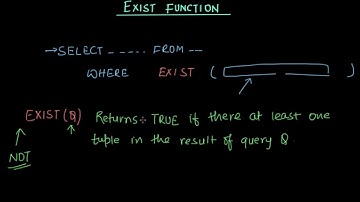 EXIST FUNCTION
→SELECT ----- FROM --
WHERE EXIST ( )
EXIST(Q) Returns: TRUE if there at least one
tuple in the result of query Q
NOT